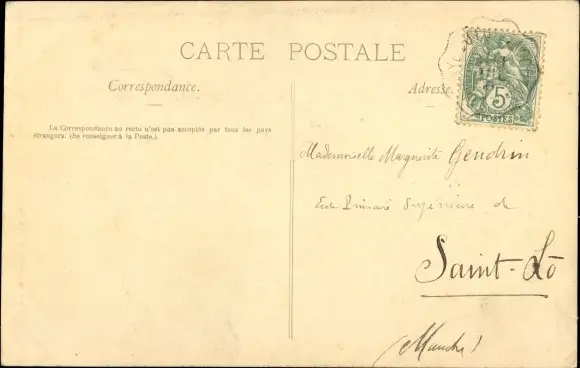 CARTE POSTALE
Correspondance.
La Correspondance au recto n'est pas acceptée par tous les pays
étrangers. (Se renseigner à la Poste.)
Adresse.
5
POSTES
Mademoiselle Marguerite Gendrin
Ecole Primaire Supérieure de
Saint-Lô
(Manche)